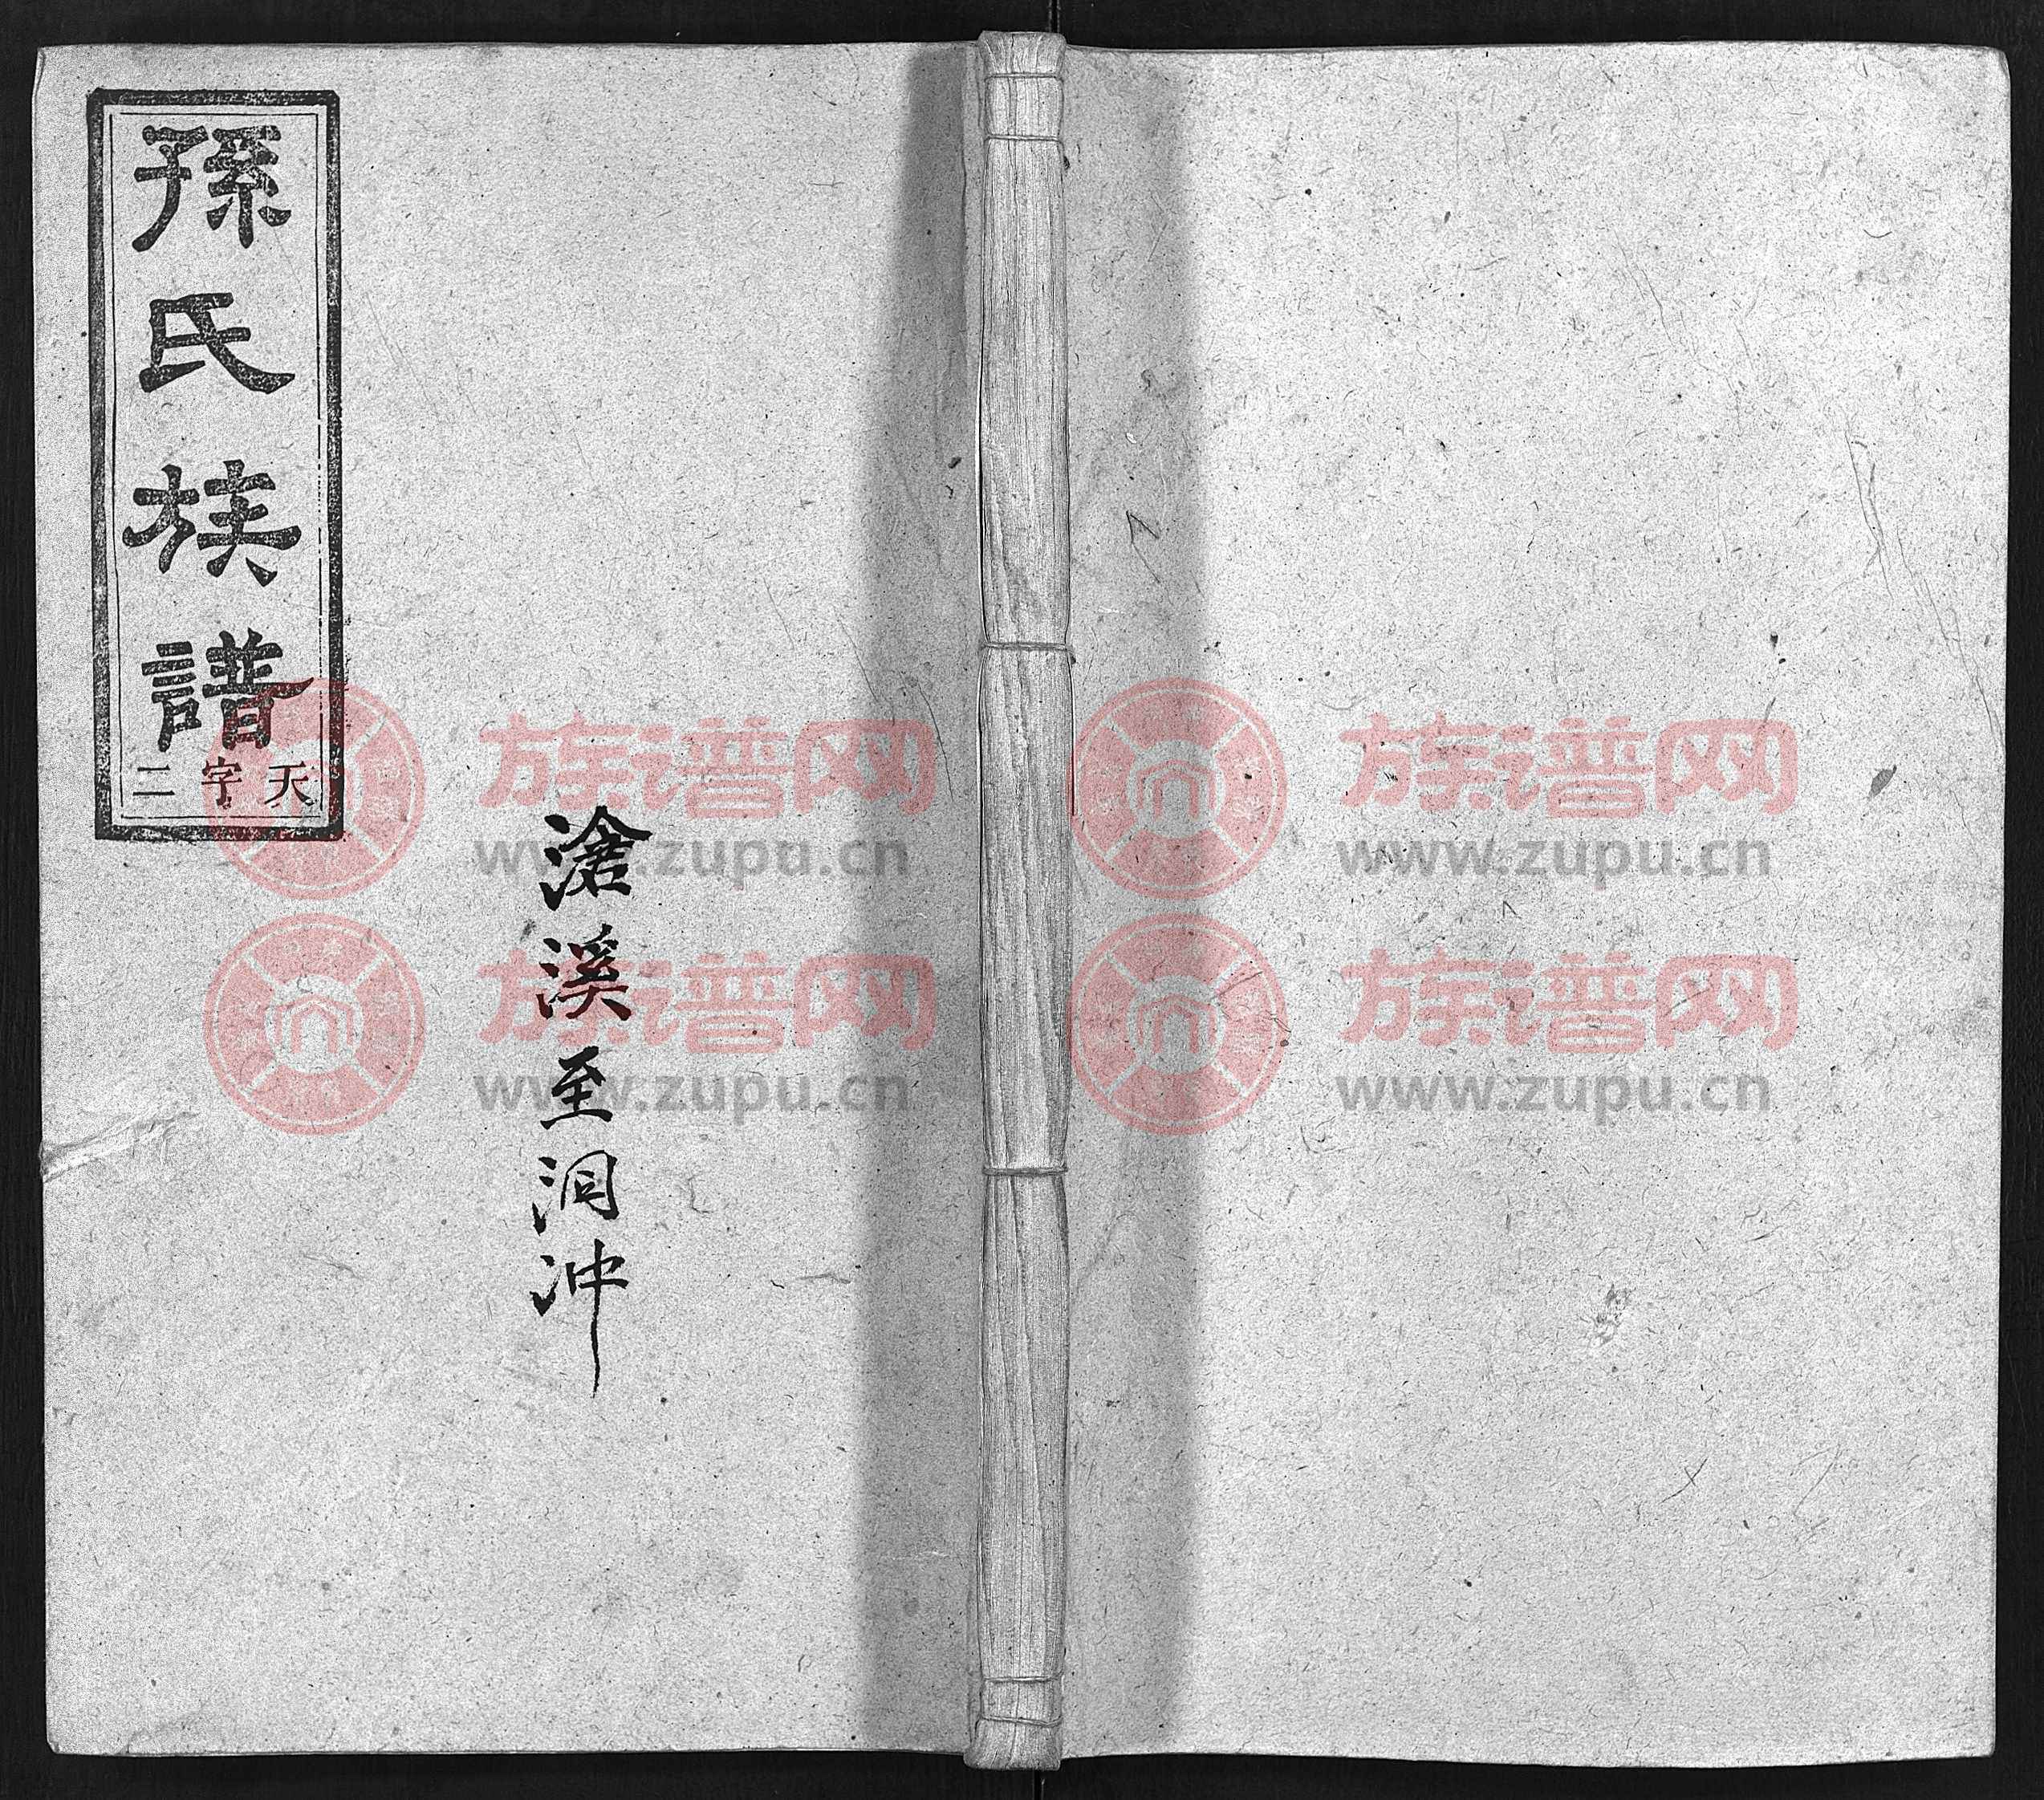 孫氏族譜
天字二
滄溪至洞冲
族谱网
www.zupu.cn
族谱网
www.zupu.cn
族谱网
www.zupu.cn
族谱网
www.zupu.cn